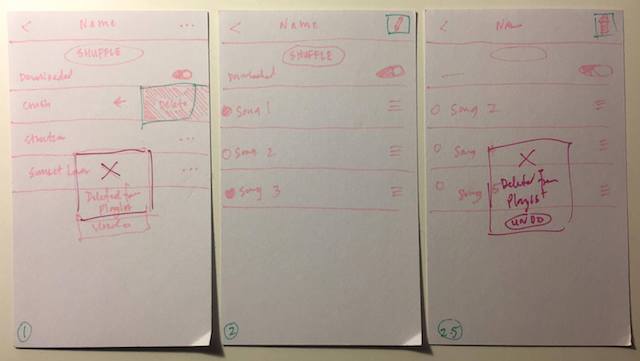 < Name ...
SHUFFLE
Downloaded
Crush ← Delete
...
Sunset Lover ...
X
Deleted from
Playlist
Undo
1
< Name
SHUFFLE
Downloaded
Song 1
Song 2
Song 3
2
<
Song
Song
X
Deleted from
Playlist
UNDO
2.5